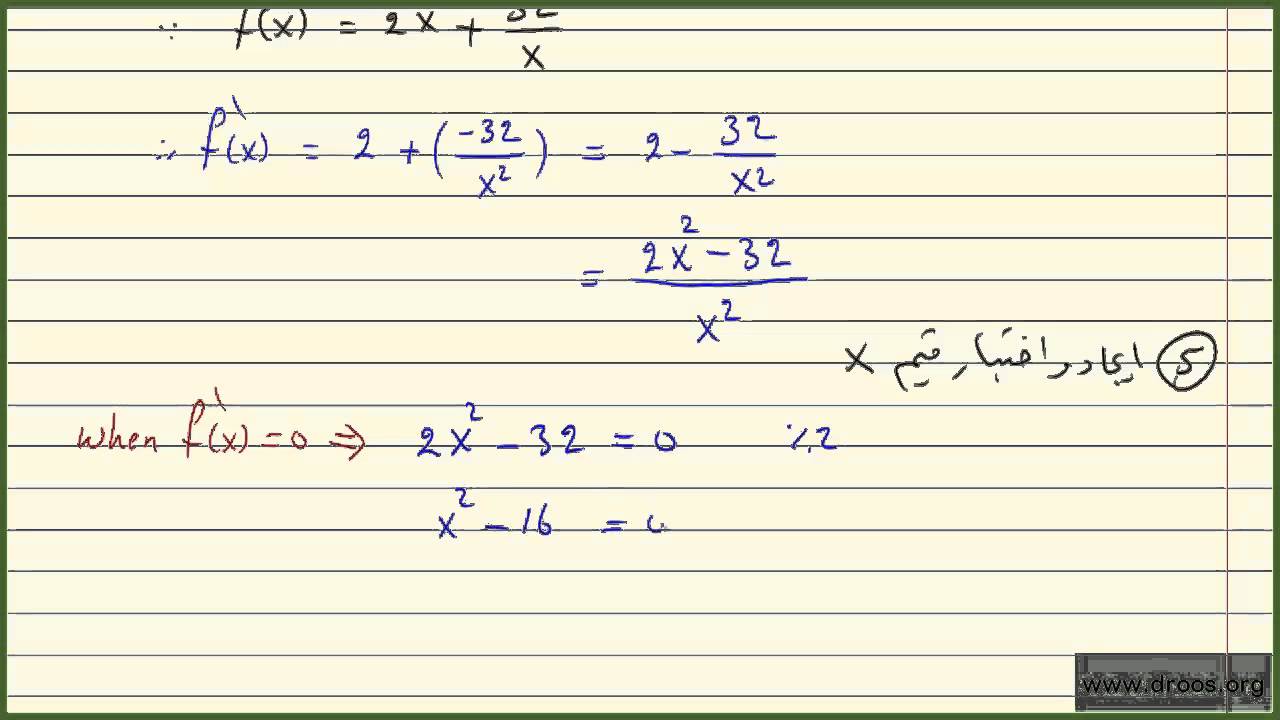 ∵ f(x) = 2x + 32/x
∴ f'(x) = 2 + (-32/x²) = 2 - 32/x²
= 2x² - 32/x²
5 ايجاد واختبار قيم x
when f'(x) = 0 ⇒ 2x² - 32 = 0 ٪2
x² - 16 = 0
www.droos.org